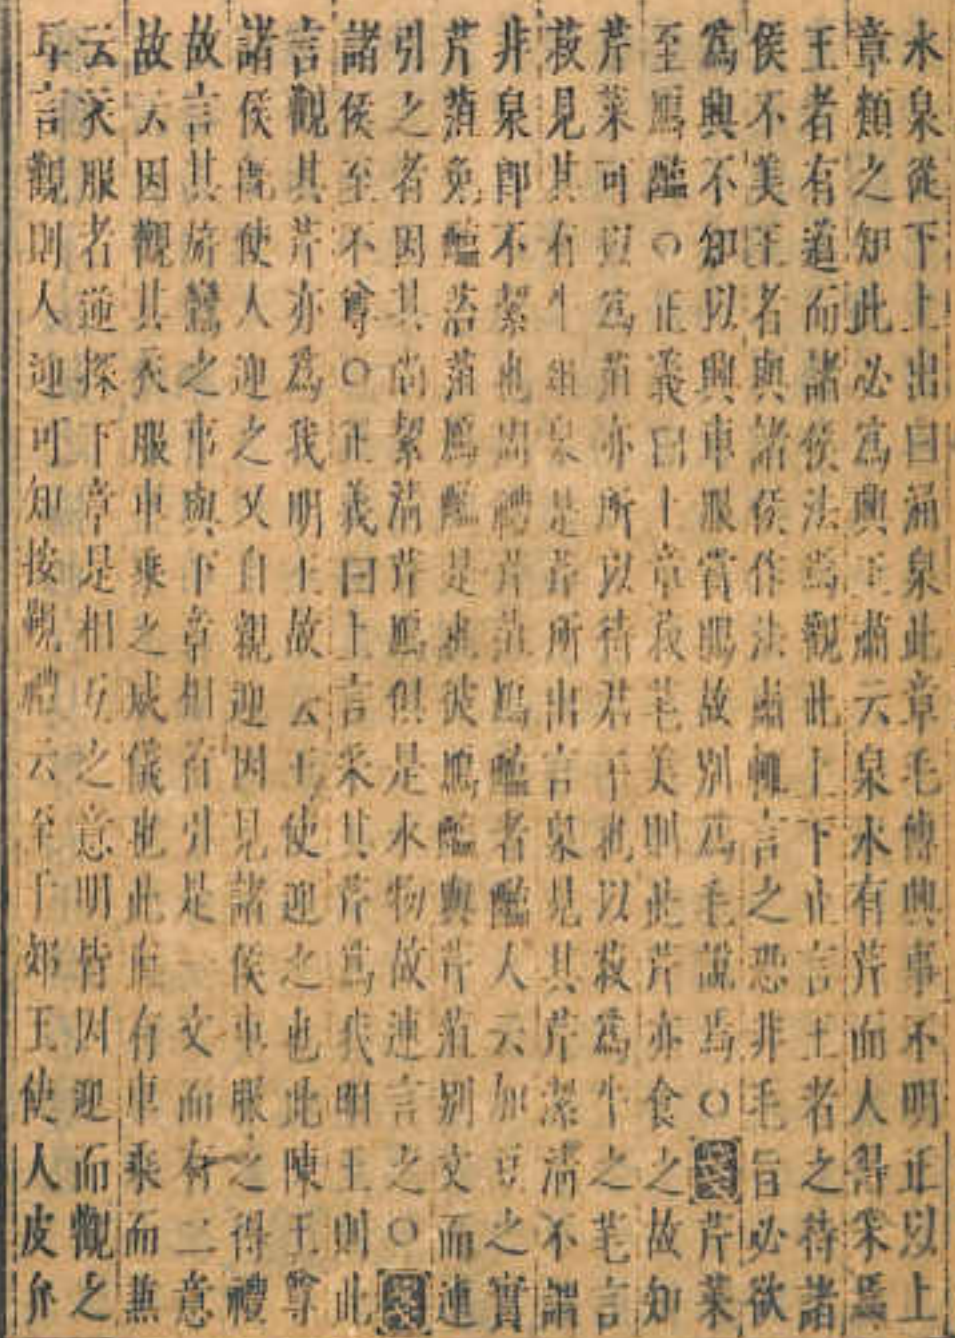 水泉從下上出曰涌泉此章毛傳興事不明正以上
章類之知此必為興王肅云泉水有芹而人得采焉
王者有道而諸侯法焉觀此上下止言王者之待諸
侯不美王者與諸侯作法肅輒言之恐非毛旨必欲
為興不知以興車服賞賜故別為毛說焉○芹菜
至鴈醢○正義曰上章菽芼美則此芹亦食之故知
芹菜可以為菹亦所以待君子也以菽為牛之芼言
菽見其有牛俎泉是芹所出言泉見其芹潔清不謂
非泉即不絜也周禮芹菹鴈醢者醢人云加豆之實
芹菹兔醢菭菹鴈醢是也彼鴈醢與芹菹別文而連
引之者因其尚絜清芹鴈俱是水物故連言之○
諸侯至不尊○正義曰上言采其芹為我明王則此
言觀其芹亦為我明王故云王使迎之也此陳王尊
諸侯既使人迎之又自親迎因見諸侯車服之得禮
故言其旂鸞之事與下章相首引是一文而有二意
故云因觀其衣服車乘之威儀也此唯有車乘而兼
云衣服者逆探下章是相互之意明皆因迎而觀之
耳言觀則人迎可知按覲禮云至于郊王使人皮弁